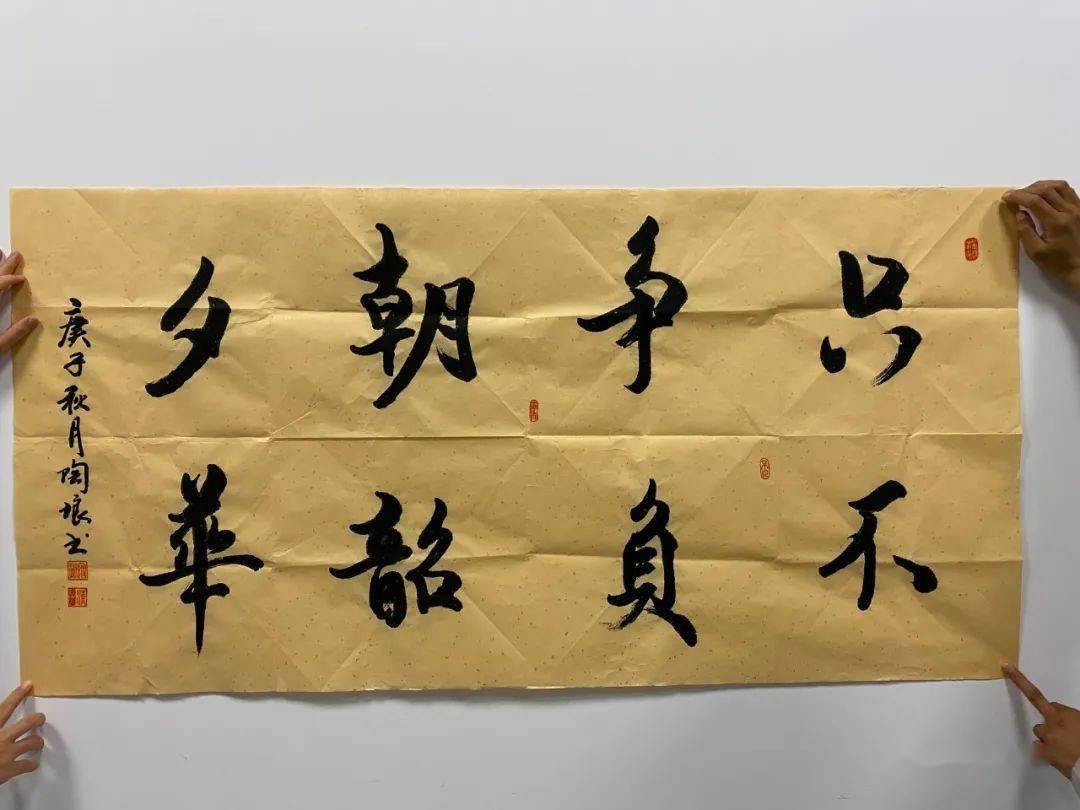 只争朝夕
不負韶華
庚子秋月陶琅书